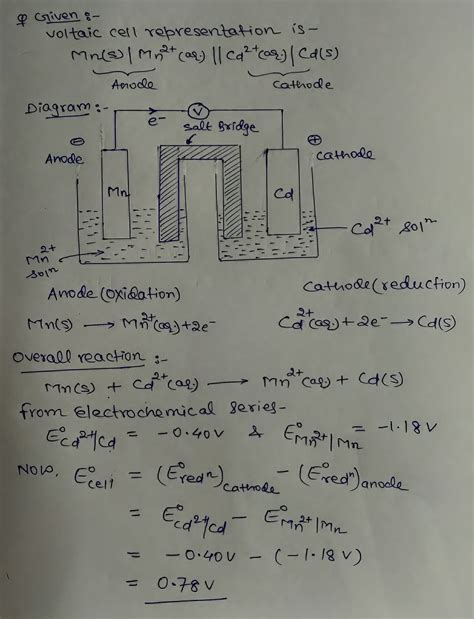 φ Given :-
Voltaic cell representation is -
Mn(s) | Mn²⁺(aq) || Cd²⁺(aq) | Cd(s)
Anode Cathode
Diagram :-
e⁻ V
Salt Bridge
⊖ ⊕
Anode Cathode
Mn Cd
Mn²⁺ solⁿ
Cd²⁺ solⁿ
Anode (Oxidation) Cathode (reduction)
Mn(s) ⟶ Mn²⁺(aq) + 2e⁻ Cd²⁺(aq) + 2e⁻ ⟶ Cd(s)
Overall reaction :-
Mn(s) + Cd²⁺(aq) ⟶ Mn²⁺(aq) + Cd(s)
from Electrochemical series-
E°Cd²⁺/Cd = -0.40V & E°Mn²⁺|Mn = -1.18V
Now, E°cell = (E°redⁿ)cathode - (E°redⁿ)anode
= E°Cd²⁺/Cd - E°Mn²⁺|Mn
= -0.40V - (-1.18V)
= 0.78V